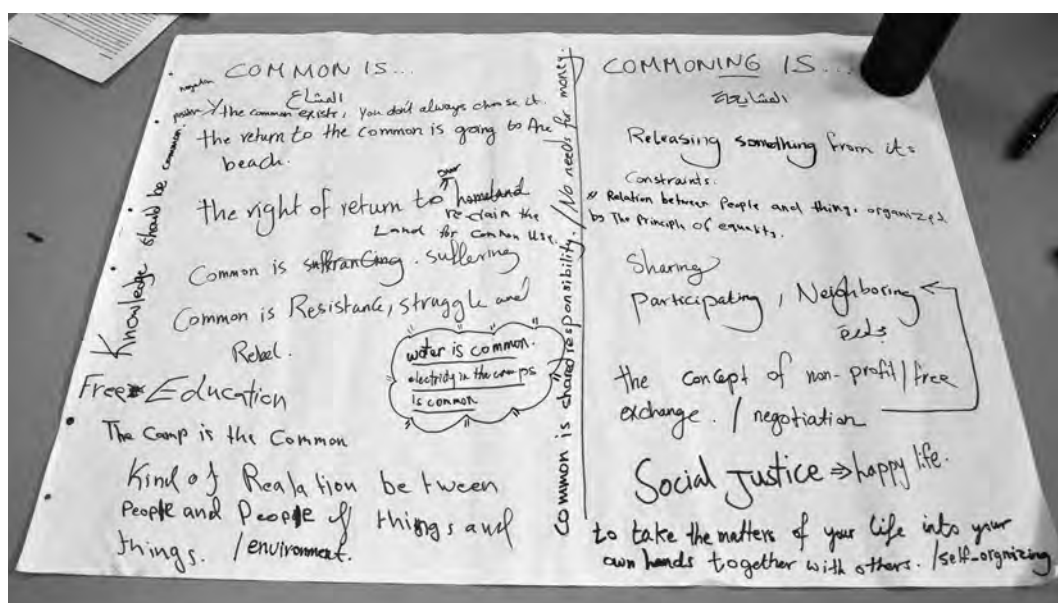 COMMON IS...
المشاع
negative
positive
the common exists, you don't always choose it.
the return to the common is going to the
beach.
the right of return to our homeland
reclaim the
Land for common use.
Common is suffering
Common is Resistance, struggle and
Rebel.
water is common.
electricity in the camps
is common
Free Education
The Camp is the Common
Kind of Realation between
People and People of things and
things. /environment.
Knowledge should be common.
common is shared responsibility. / No needs for money
COMMONING IS...
المشايعة
Releasing something from its
constraints.
Relation between People and things organized
by The Principle of equality.
Sharing
Participating, Neighboring
the concept of non-profit/free
exchange. / negotiation
Social Justice ⇒ happy life.
to take the matters of your life into your
own hands together with others. /self-orgnizing